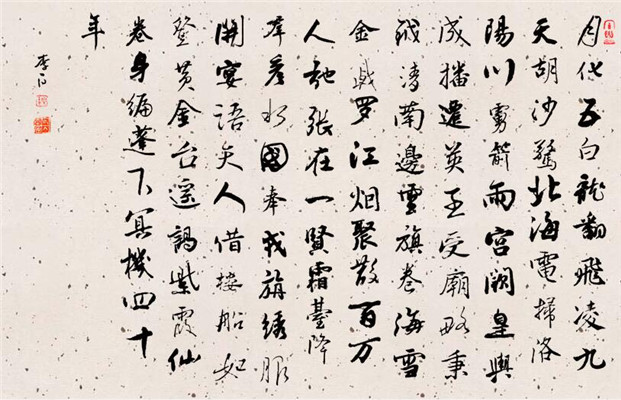 月化五白龍翻飛凌九
天胡沙驚北海電掃洛
陽川虜箭雨宮闕皇輿
成播遷英王受廟略秉
鉞清南邊雲旗卷海雪
金戟罗江烟聚散百万
人弛張在一賢霜臺降
群彥水國奉戎旃綉服
開宴語天人借樓船如
登黃金台遥謁紫霞仙
卷身編蓬下冥機四十
年